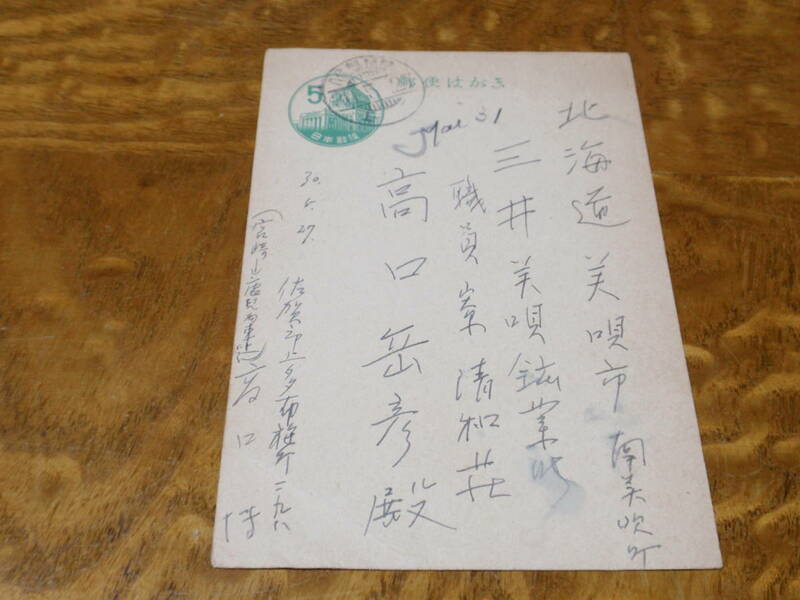 郵便はがき
5
日本郵便
Mai 31
北海道美唄市南美唄町
三井美唄鉱業所
職員寮清和荘
高口岳彦殿
30. 5. 27.
佐賀市上多布施町一二九八
高口